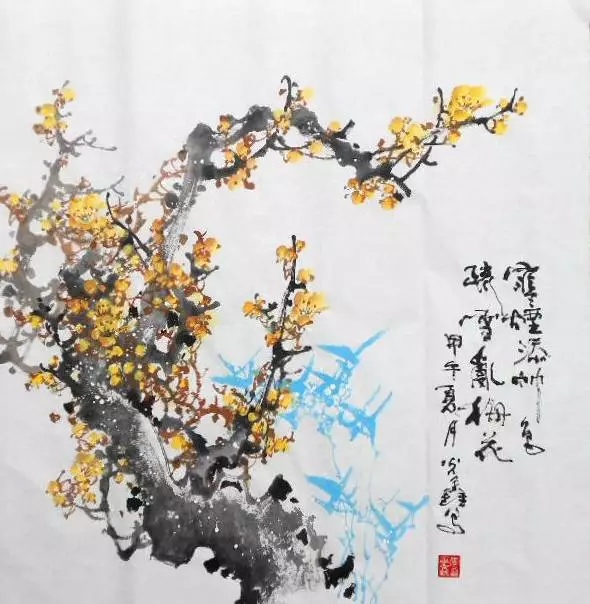 寒煙添竹色
疎雪亂梅花
甲午夏月